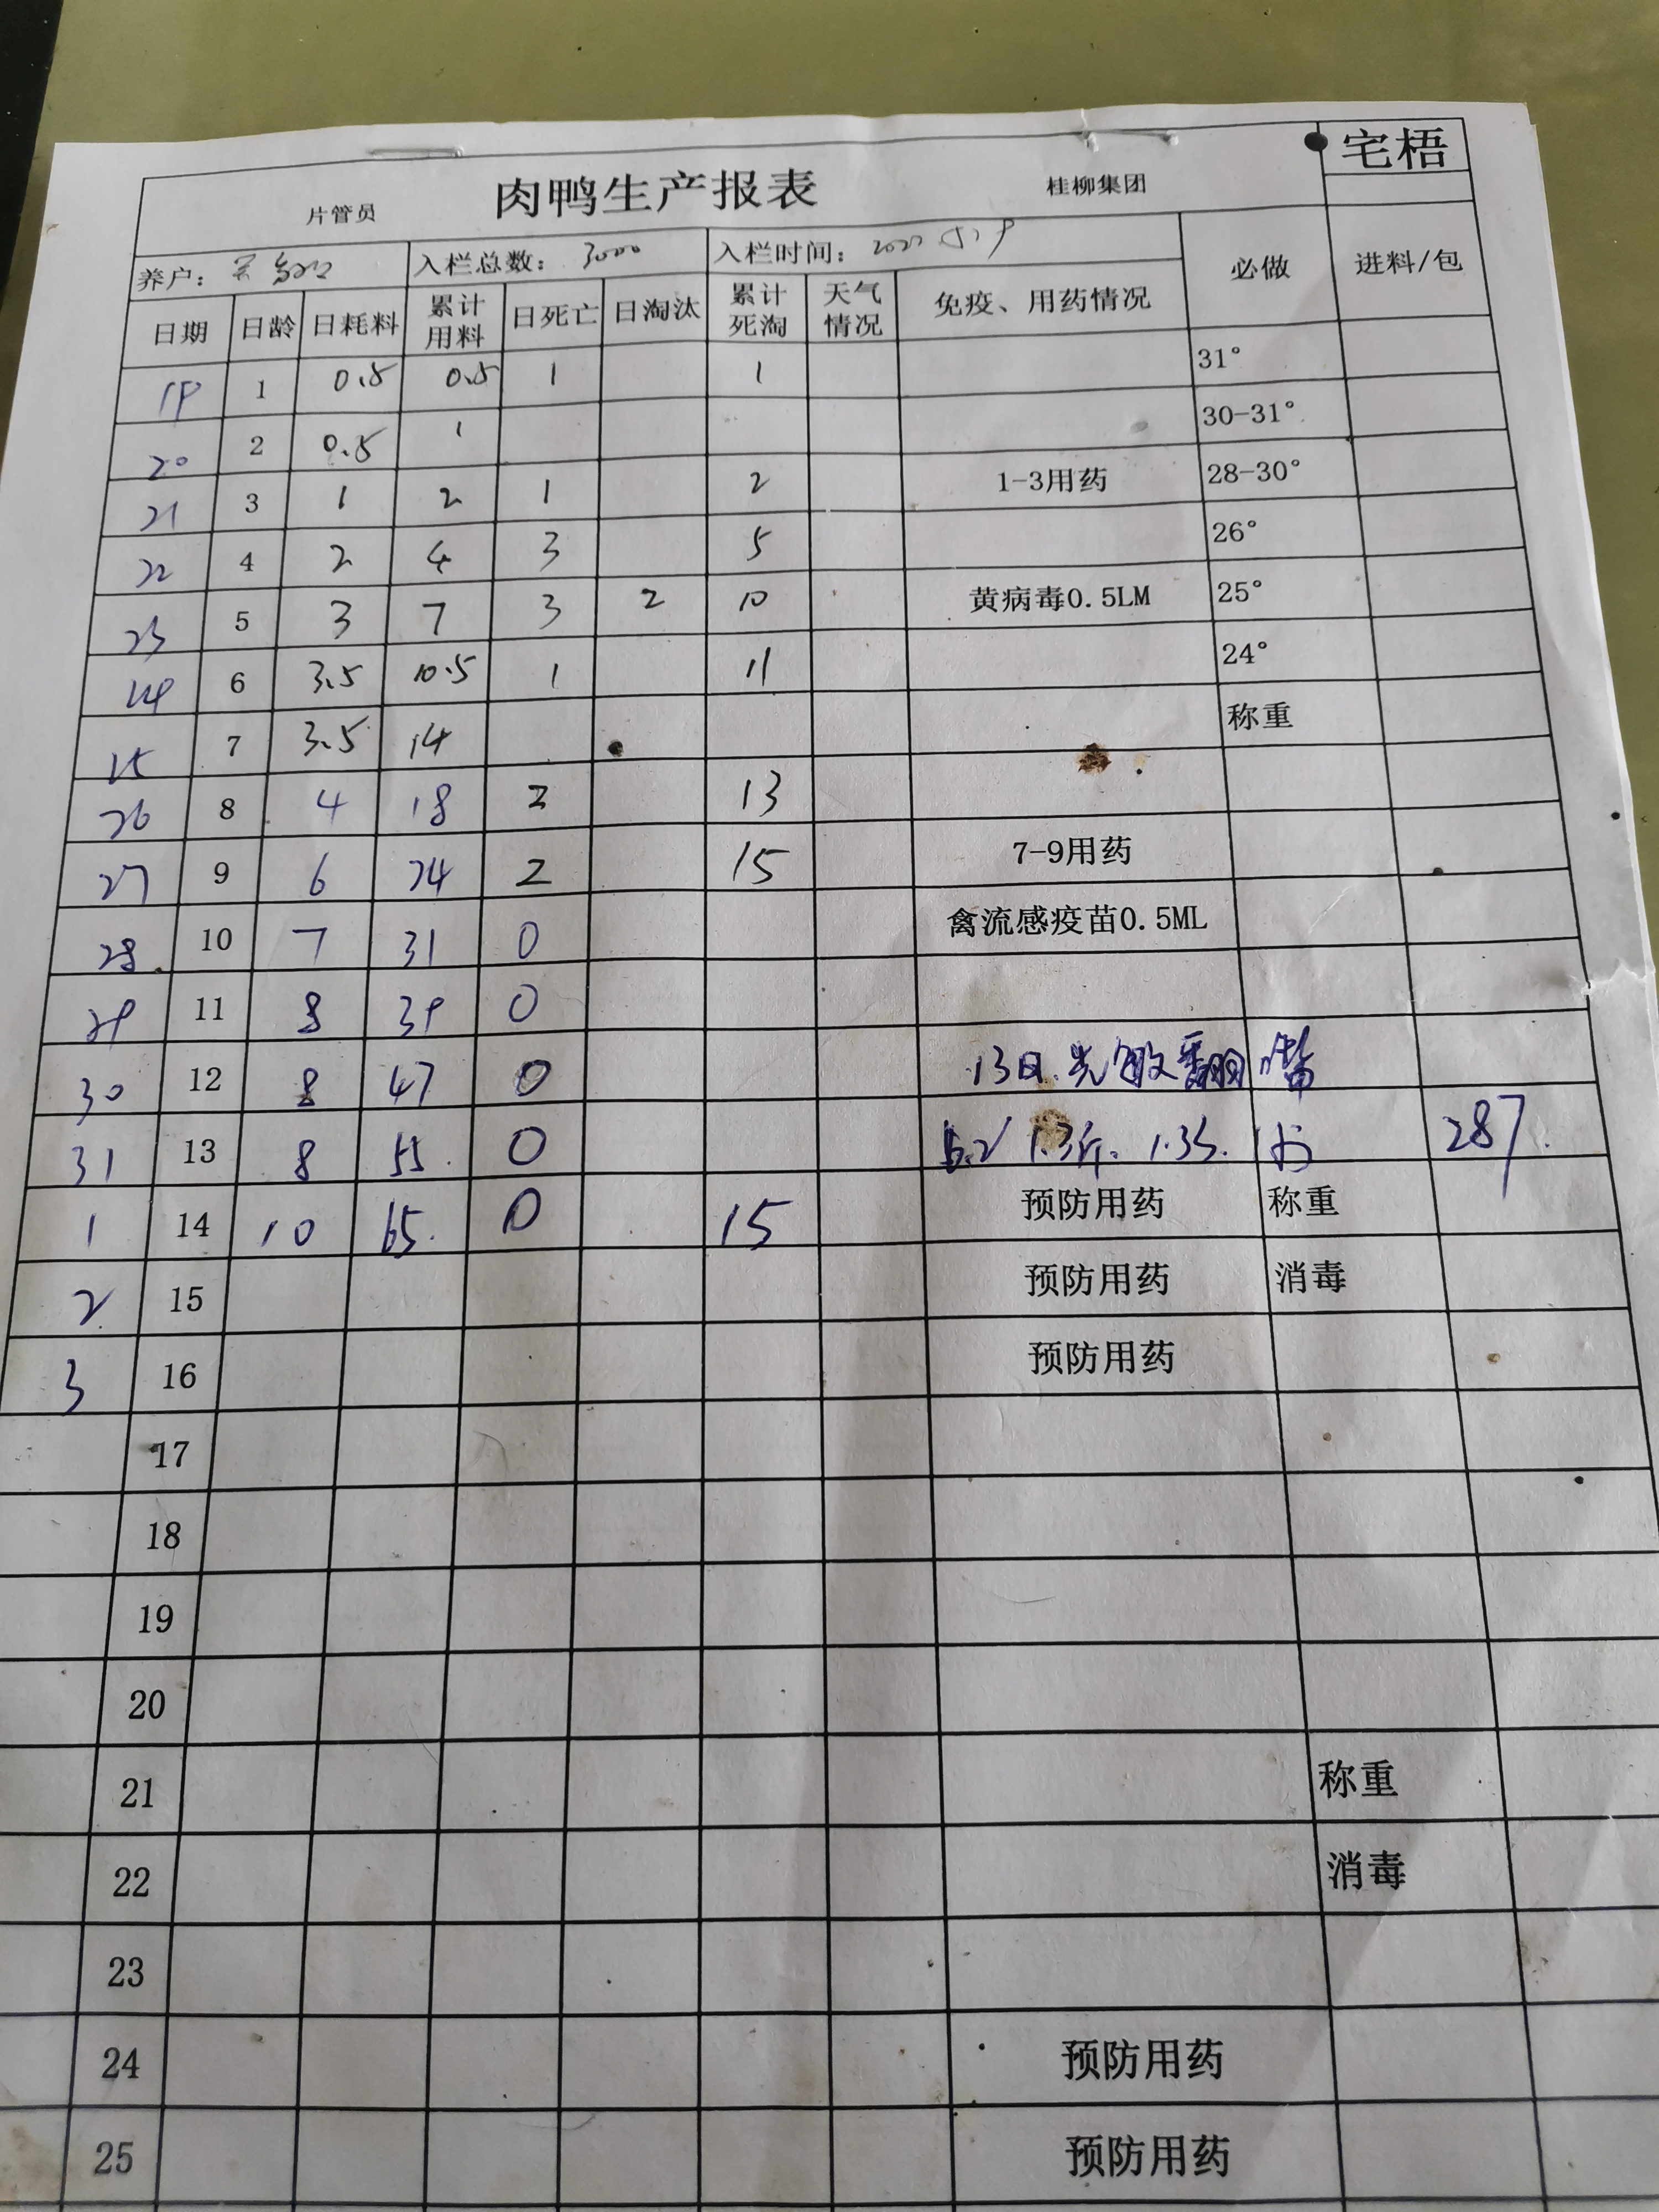 宅梧
片管员 肉鸭生产报表 桂柳集团
养户： 入栏总数： 3000 入栏时间： 必做 进料/包
日期 日龄 日耗料 累计用料 日死亡 日淘汰 累计死淘 天气情况 免疫、用药情况
19 1 0.5 0.5 1 1 31°
20 2 0.5 1 30-31°
21 3 1 2 1 2 1-3用药 28-30°
22 4 2 4 3 5 26°
23 5 3 7 3 2 10 黄病毒0.5LM 25°
24 6 3.5 10.5 1 11 24°
25 7 3.5 14 称重
26 8 4 18 2 13
27 9 6 24 2 15 7-9用药
28 10 7 31 0 禽流感疫苗0.5ML
29 11 8 39 0
30 12 8 47 0 13日
31 13 8 55. 0 1.3斤. 1.35. 287.
1 14 10 65. 0 15 预防用药 称重
2 15 预防用药 消毒
3 16 预防用药
17
18
19
20
21 称重
22 消毒
23
24 预防用药
25 预防用药